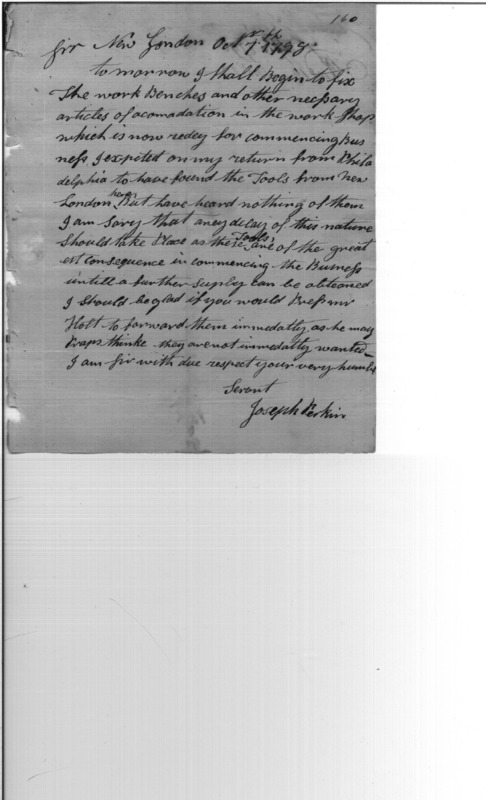 160
Sir New London Octr 7th 1798
to morrow I shall Begin to fix
The work Benches and other necessary
articles of acomadation in the work Shop
which is now redey for commencing Bus
ness I expited on my return from Phila
delphia to have found the Tools from New
London heer But have heard nothing of them
I am sory that aney delay of this nature
Should take Place as these Tools are of the great
est Consequence in commencing the Business
untill a further suply can be obteaned
I should be glad if you would Press mr
Holt to forward them immedatly as he may
Praps thinke they are not immedatly wanted
I am Sir with due respect your very humble
Servnt
Joseph Perkin